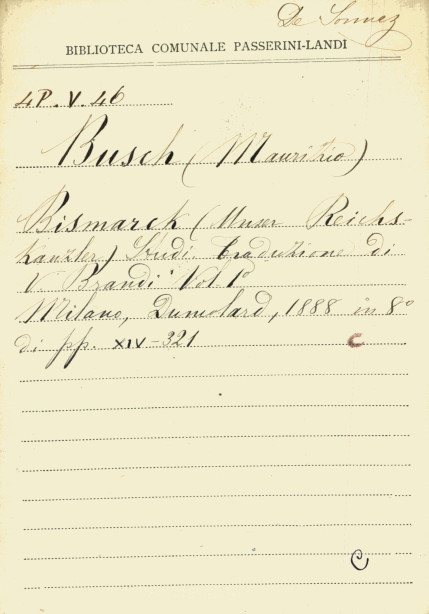 De
BIBLIOTECA COMUNALE PASSERINI-LANDI
4P.V.46
Busch (Maurizio)
Bismarck (Unser Reichs-
kanzler) Studi traduzione di
V. Brandi Vol 1º
Milano, Dumolard, 1888 in 8º
di pp. XIV-321
C
C